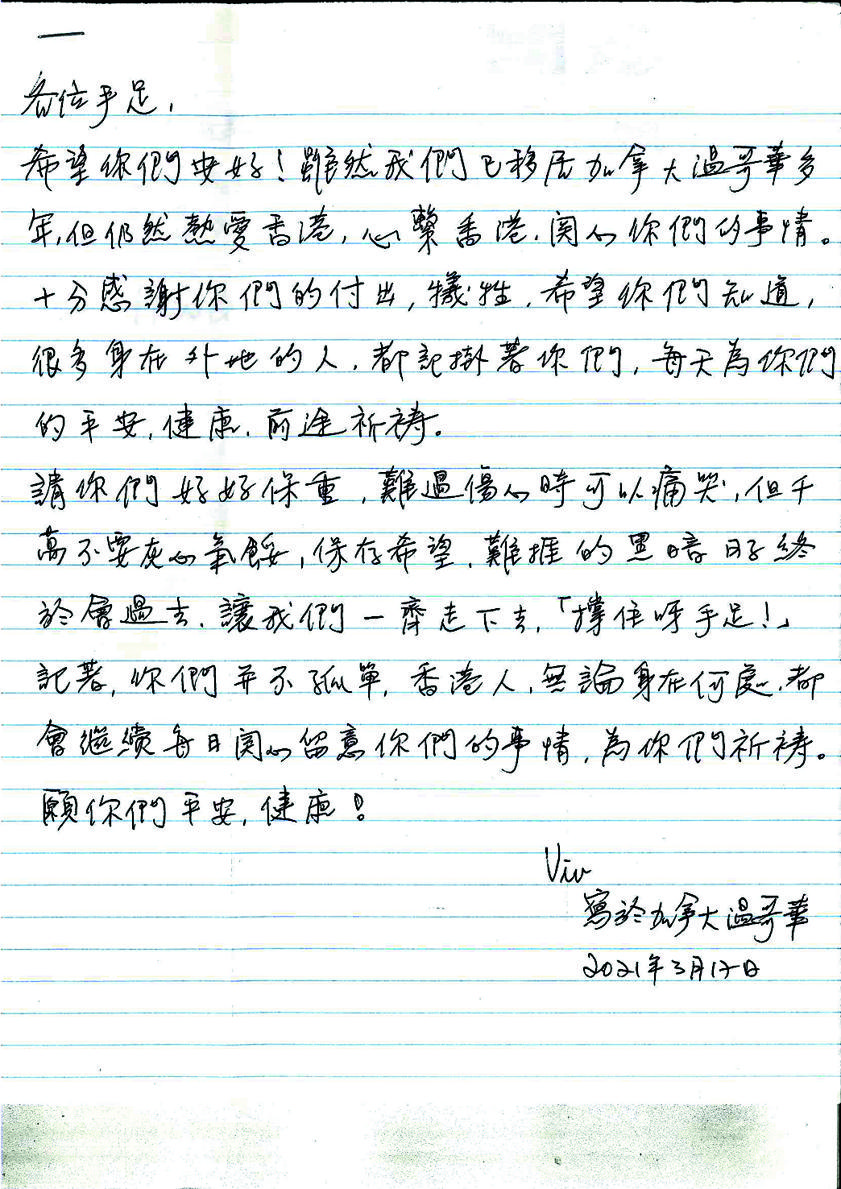 各位手足，
希望你們安好！雖然我們已移居加拿大溫哥華多
年，但仍然熱愛香港，心繫香港，関心你們的事情。
十分感謝你們的付出，犧牲，希望你們知道，
很多身在外地的人，都記掛著你們，每天為你們
的平安，健康，前途祈禱。
請你們好好保重，難過傷心時可以痛哭，但千
萬不要灰心氣餒，保存希望，難捱的黑暗日子終
於會過去，讓我們一齊走下去，「撐住呀手足！」
記著，你們並不孤單，香港人，無論身在何處，都
會繼續每日関心留意你們的事情，為你們祈禱。
願你們平安，健康！
Viv
寫於加拿大溫哥華
2021年3月17日